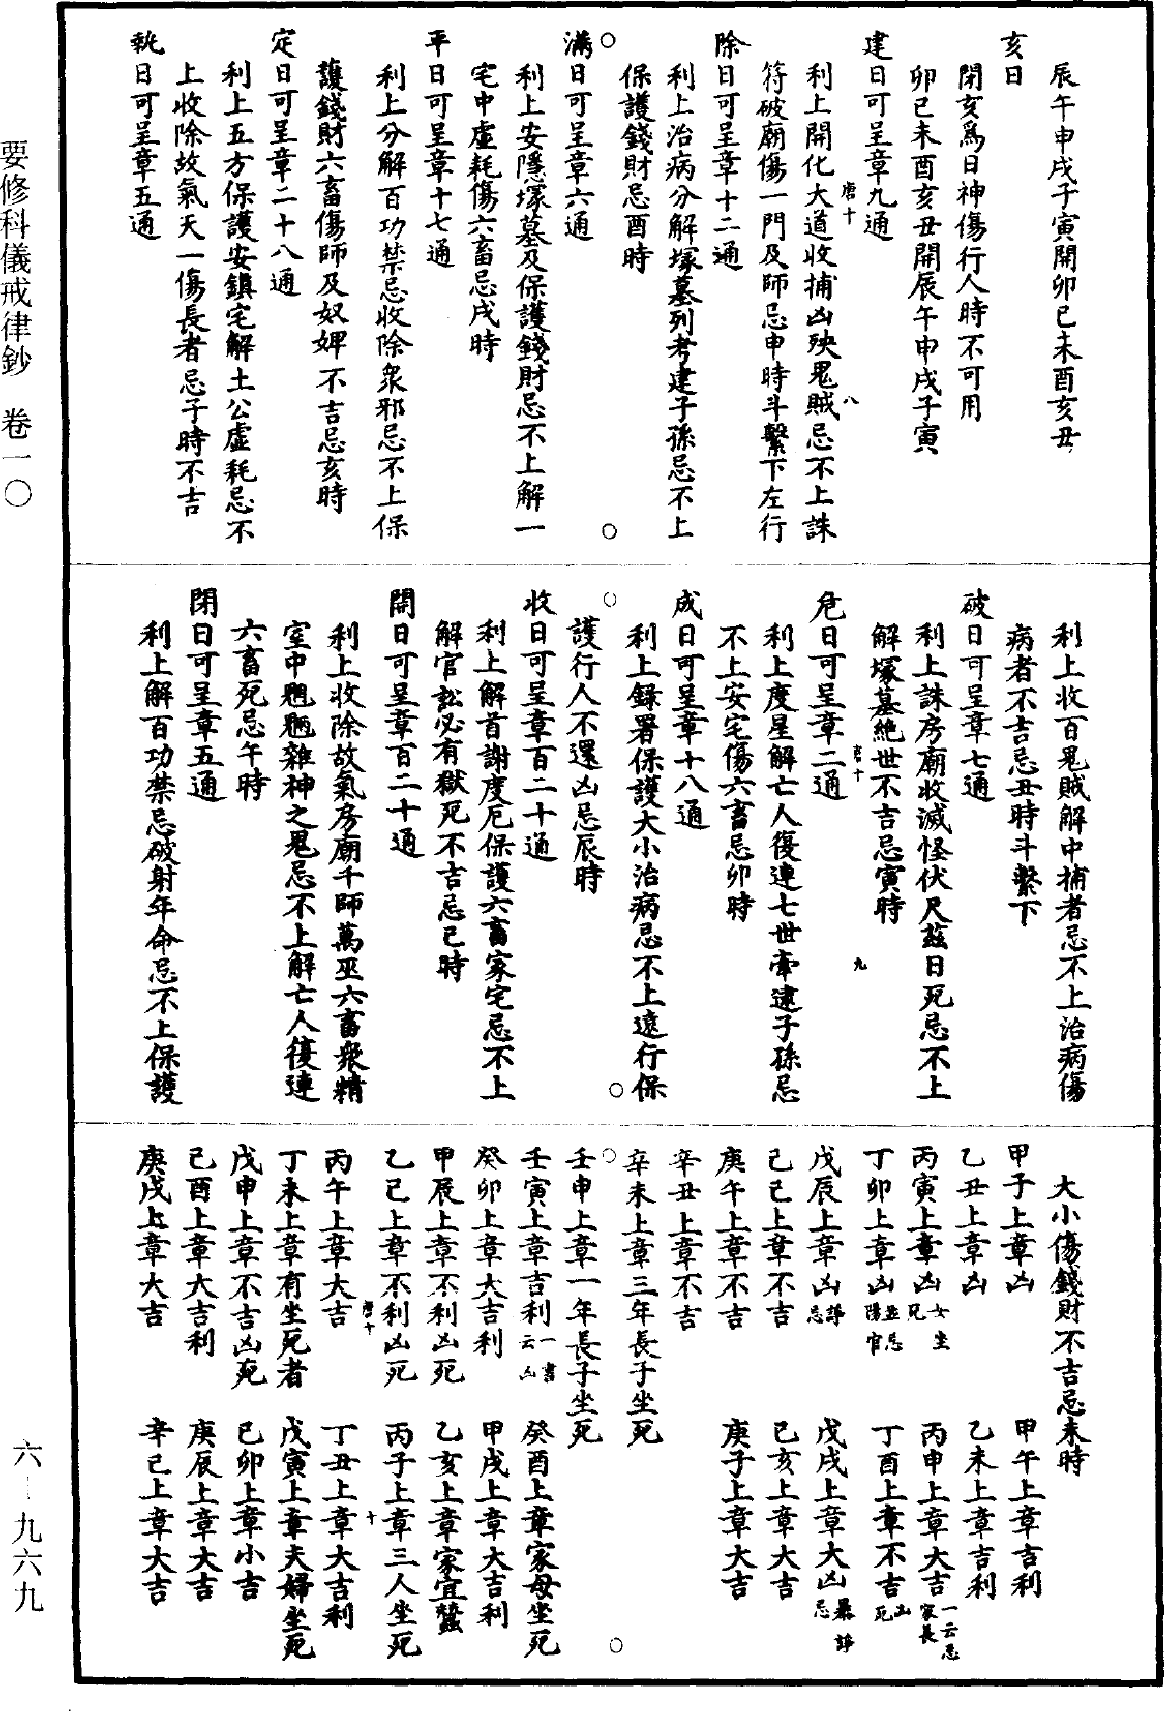 辰午申戌子寅開卯巳未酉亥丑
亥日
閉亥爲日神傷行人時不可用
卯巳未酉亥丑開辰午申戌子寅
建日可呈章九通
唐十 八
利上開化大道收捕凶殃鬼賊忌不上誅
符破廟傷一門及師忌申時斗繫下左行
除日可呈章十二通
利上治病分解塚墓列考建子孫忌不上
保護錢財忌酉時
滿日可呈章六通
利上安隱塚墓及保護錢財忌不上解一
宅中虛耗傷六畜忌戌時
平日可呈章十七通
利上分解百功禁忌收除衆邪忌不上保
護錢財六畜傷師及奴婢不吉忌亥時
定日可呈章二十八通
利上五方保護安鎮宅解土公虛耗忌不
上收除故氣天一傷長者忌子時不吉
執日可呈章五通
利上收百鬼賊解中捕者忌不上治病傷
病者不吉忌丑時斗繫下
破日可呈章七通
利上誅房廟收滅怪伏尺茲日死忌不上
解塚墓絶世不吉忌寅時
唐十 九
危日可呈章二通
利上度星解亡人復連七世牽逮子孫忌
不上安宅傷六畜忌卯時
成日可呈章十八通
利上録署保護大小治病忌不上遠行保
護行人不還凶忌辰時
收日可呈章百二十通
利上解首謝度厄保護六畜家宅忌不上
解官訟必有獄死不吉忌巳時
開日可呈章百二十通
利上收除故氣房廟千師萬巫六畜衆精
室中魍魎雜神之鬼忌不上解亡人復連
六畜死忌午時
閉日可呈章五通
利上解百功禁忌破射年命忌不上保護
大小傷錢財不吉忌未時
甲子上章凶 甲午上章吉利
乙丑上章凶 乙未上章吉利
丙寅上章凶女坐死 丙申上章大吉一云忌家長
丁卯上章凶並忌陽官 丁酉上章不吉凶死
戊辰上章凶諱忌 戊戌上章大凶暴諱忌
己巳上章不吉 己亥上章大吉
庚午上章不吉 庚子上章大吉
辛丑上章不吉
辛未上章三年長子坐死
壬申上章一年長子坐死
壬寅上章吉利一書云凶 癸酉上章家母坐死
癸卯上章大吉利 甲戌上章大吉利
甲辰上章不利凶死 乙亥上章家宜蠶
乙巳上章不利凶死 丙子上章三人坐死
唐十 十
丙午上章大吉 丁丑上章大吉利
丁未上章有坐死者 戊寅上章夫婦坐死
戊申上章不吉凶死 己卯上章小吉
己酉上章大吉利 庚辰上章大吉
庚戌上章大吉 辛巳上章大吉
要修科儀戒律鈔 卷一〇
六—九六九